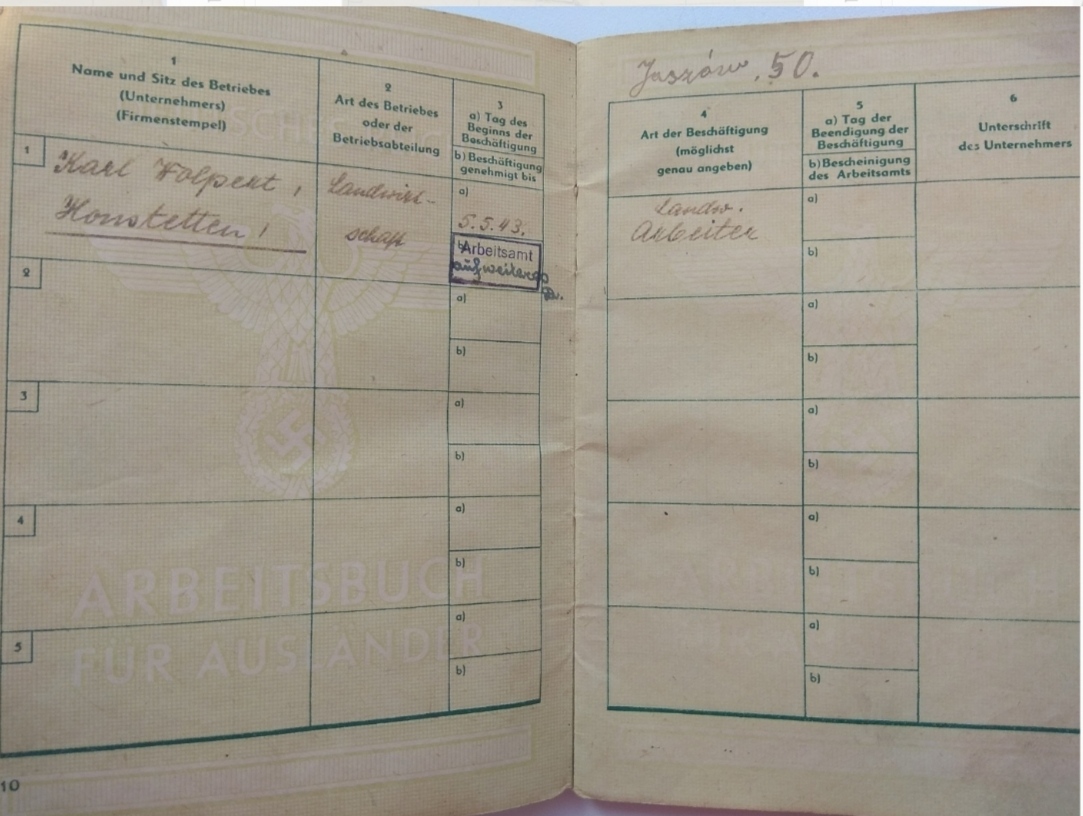 1
Name und Sitz des Betriebes
(Unternehmers)
(Firmenstempel)
2
Art des Betriebes
oder der
Betriebsabteilung
3
a) Tag des
Beginns der
Beschäftigung
b) Beschäftigung
genehmigt bis
1
Karl Wolpert,
Honstetten!
Landwirt-
schaft
a)
5.5.43.
b)
Arbeitsamt
auf weiteres
2
a)
b)
3
a)
b)
4
a)
b)
5
a)
b)
ARBEITSBUCH
FÜR AUSLÄNDER
10
Jaszów, 50.
4
Art der Beschäftigung
(möglichst
genau angeben)
5
a) Tag der
Beendigung der
Beschäftigung
b) Bescheinigung
des Arbeitsamts
6
Unterschrift
des Unternehmers
Landw.
Arbeiter
a)
b)
a)
b)
a)
b)
a)
b)
a)
b)